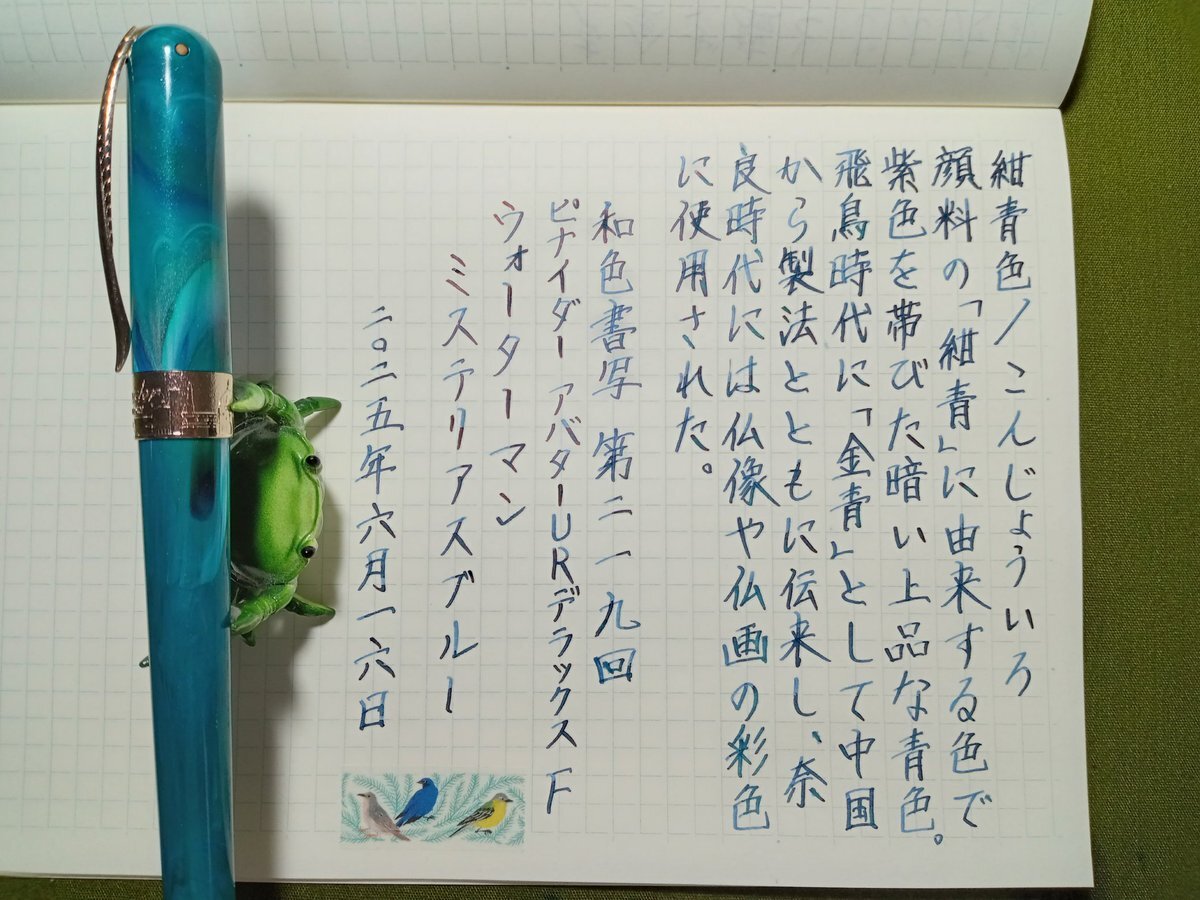 紺青色／こんじょういろ
顔料の「紺青」に由来する色で
紫色を帯びた暗い上品な青色。
飛鳥時代に「金青」として中国
から製法とともに伝来し、奈
良時代には仏像や仏画の彩色
に使用された。
和色書写 第二一九回
ピナイダー アバターURデラックス F
ウォーターマン
ミステリアスブルー
二〇二五年六月一六日